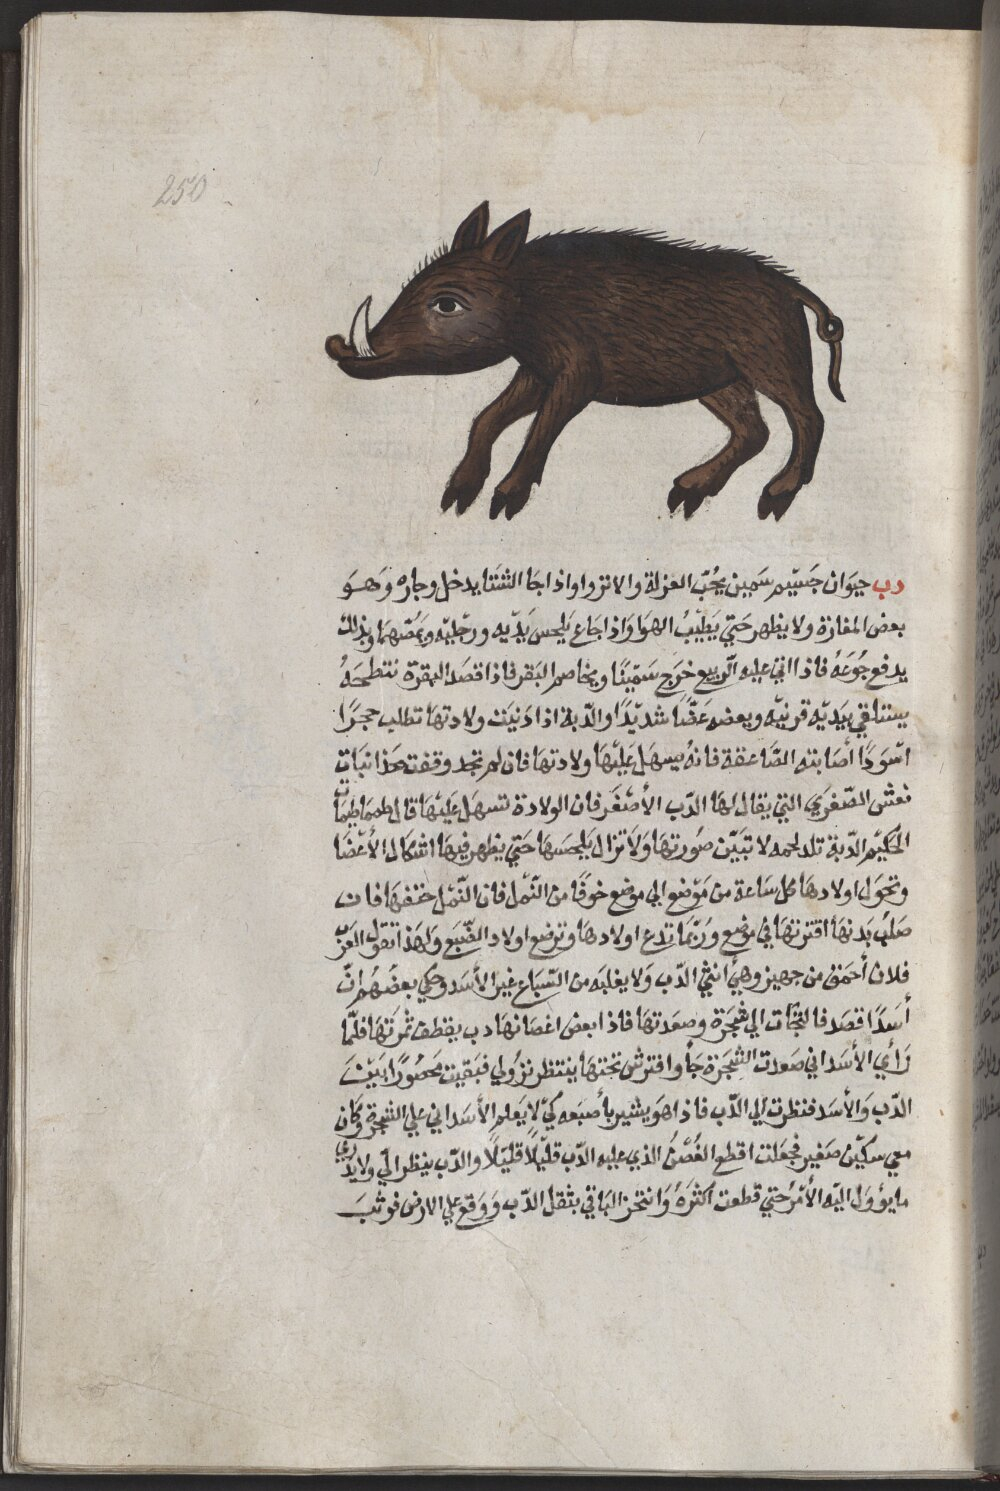 250
دب حيوان جسيم سمين يحب العزلة والانزوا واذا جا الشتا يدخل وجاره وهو
بعض المفازة ولا يظهر حتي يطيب الهوا واذا جاع يلحس يديه ورجليه ويمصهما وبذلك
يدفع جوعه فاذا اتي عليه الربيع خرج سمينا ويخاصم البقر فاذا قصد البقرة تنطحه
يستلقي بيديه قرنيه ويعضه عضا شديدا والدبة اذا دنيت ولادتها تطلب حجرا
اسودا أصابته الصاعقة فانه يسهل عليها ولادتها فان لم تجد وقفت بحذا نبات
نعش الصغري التي يقال لها الدب الأصغر فان الولادة تسهل عليها قال طمماطيمات
الحكيم الدبة تلد لحمه لا تبين صورتها ولا تزال يلحسها حتي يظهر فيها اشكال الأعضا
وتحول اولادها كل ساعة من موضع الي موضع خوفا من النمل فان النمل فان
صلب بدنها اقترتها في موضع وربما تدع اولادها وترضع اولاد الضبع ولهذا تقول العرب
فلان أحمق من جهيز وهي انثي الدب ولا يغلبه من السباع غير الأسد وحكي بعضهم ان
أسدا قصد فالتجات الي شجرة وصعدتها فاذا بعض اغصانها دب يقطف ثمرتها فلما
رأي الأسد اني صعدت الشجرة جا وافترش تحتها ينتظر نزولي فبقيت محصورا بين
الدب والأسد فنظرت الي الدب فاذا هو يشير بأصبعه كي لا يعلم الأسد اني علي الشجرة وكان
معي سكين صغير فجعلت اقطع الغصن الذي عليه الدب قليلا قليلا والدب ينظر الي ولا يدري
ما يؤول اليه الأمر حتي قطعت أكثره وانتخز الباقي بثقل الدب ووقع علي الارض فوثب